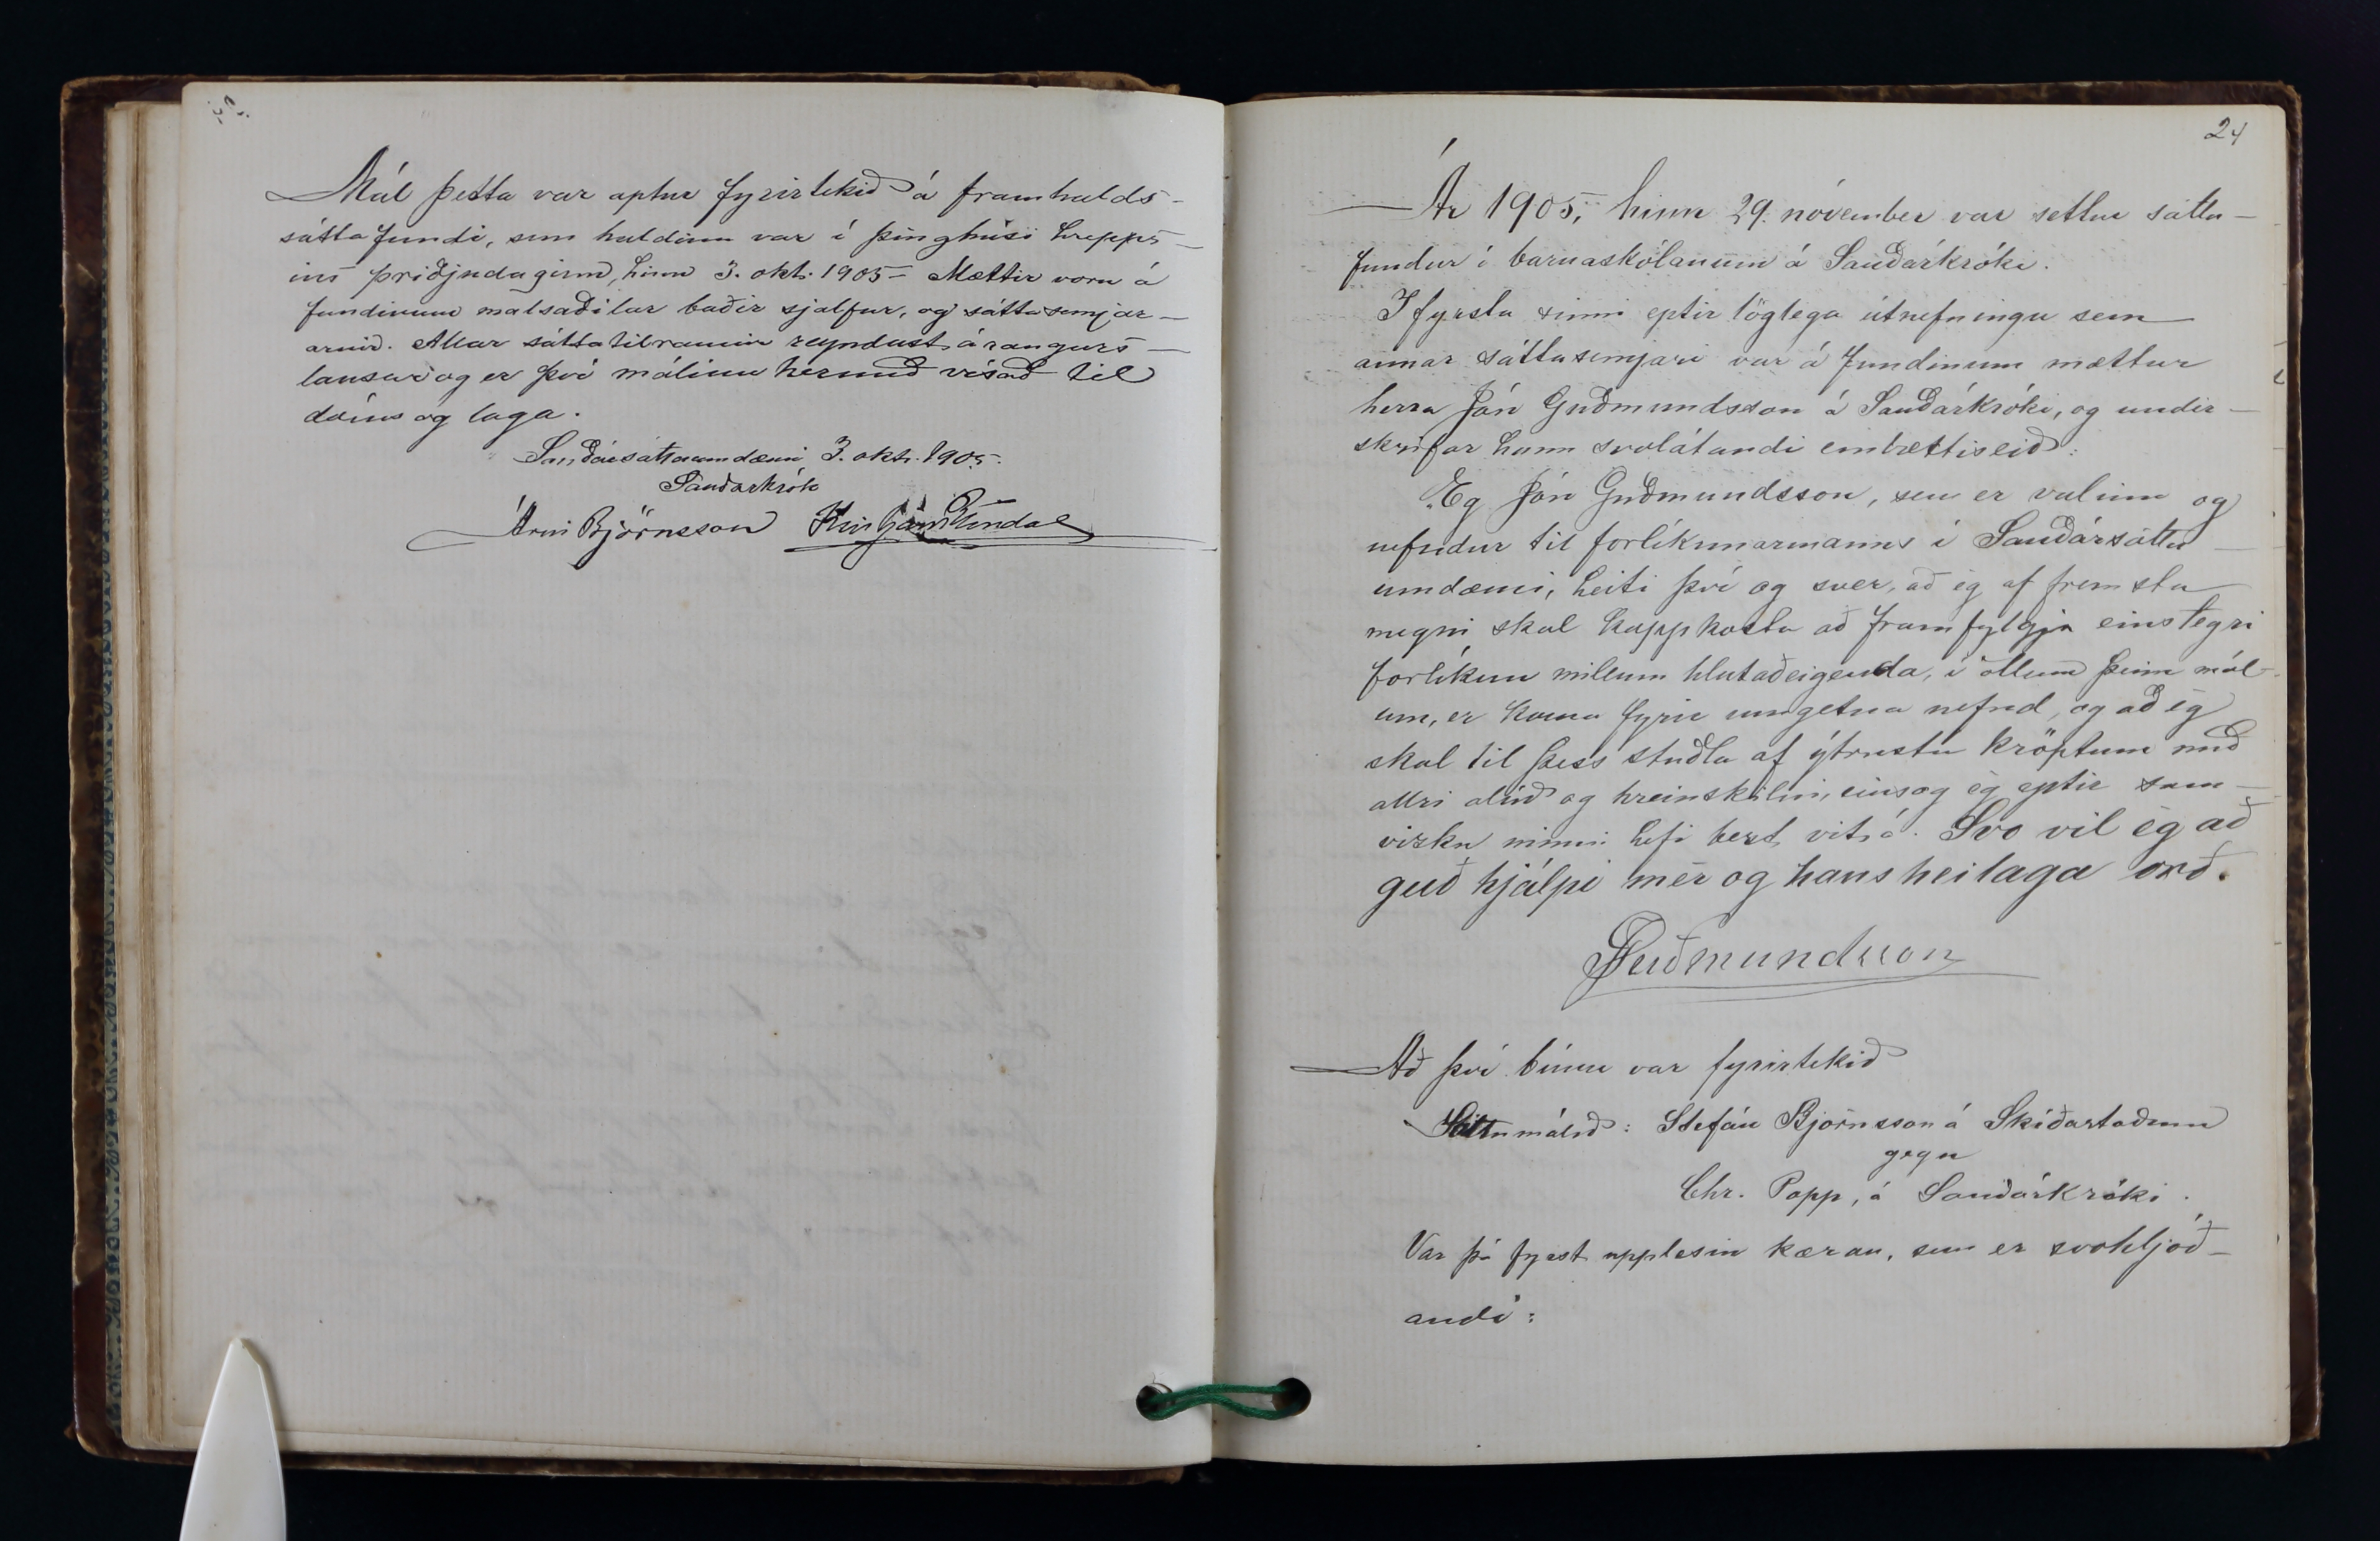 Mál þetta var aptur fyrirtekið á framhalds-
sáttafundi, sem haldinn var í þinghúsi hrepps-
ins þriðjudaginn, hinn 3. okt. 1905 – Mættir voru á
fundinum málsaðilar báðir sjálfur, og sáttasemjar-
arnir. Allar sáttatilraunir reyndust árangurs-
lausar og er því málinu hermeð vísað til
dóms og laga.
Sauðársáttaumdæmi 3. okt. 1905.
Sauðarkrók
Árni Björnsson Kristján Blöndal
24
Ár 1905, hinn 29. nóvember var settur sátta-
fundur í barnaskólanum á Sauðárkróki.
Í fyrsta sinni eptir löglega útnefningu sem
annar sáttasemjari var á fundinum mættur
herra Jón Guðmundsson á Sauðárkróki, og undir-
skrifar hann svolátandi embættiseið:
Eg Jón Guðmundsson, sem er valinn og
nefndur til forlíkunarmanns í Sauðársátta-
umdæmi, heiti því og sver, að ég af fremsta
megni skal kappkosta að framfylgja einslegri
forlíkun millum hlutaðeigenda, í öllum þeim mál-
um, er koma fyrir umgetna nefnd, og að ég
skal til þess stuðla af ýtrustu kröptum með
allri alúð og hreinskilni, einsog ég eptir sam-
vizku minni hefi bezt vit á. Svo vil ég að
guð hjálpi mér og hans heilaga orð.
JGuðmundsson
Að því búnu var fyrirtekið
Sáttamálið: Stefán Björnsson á Skíðastöðum
gegn
Chr. Popp, á Sauðárkróki.
Var þá fyrst upplesin kæran, sem er svohljóð-
andi: